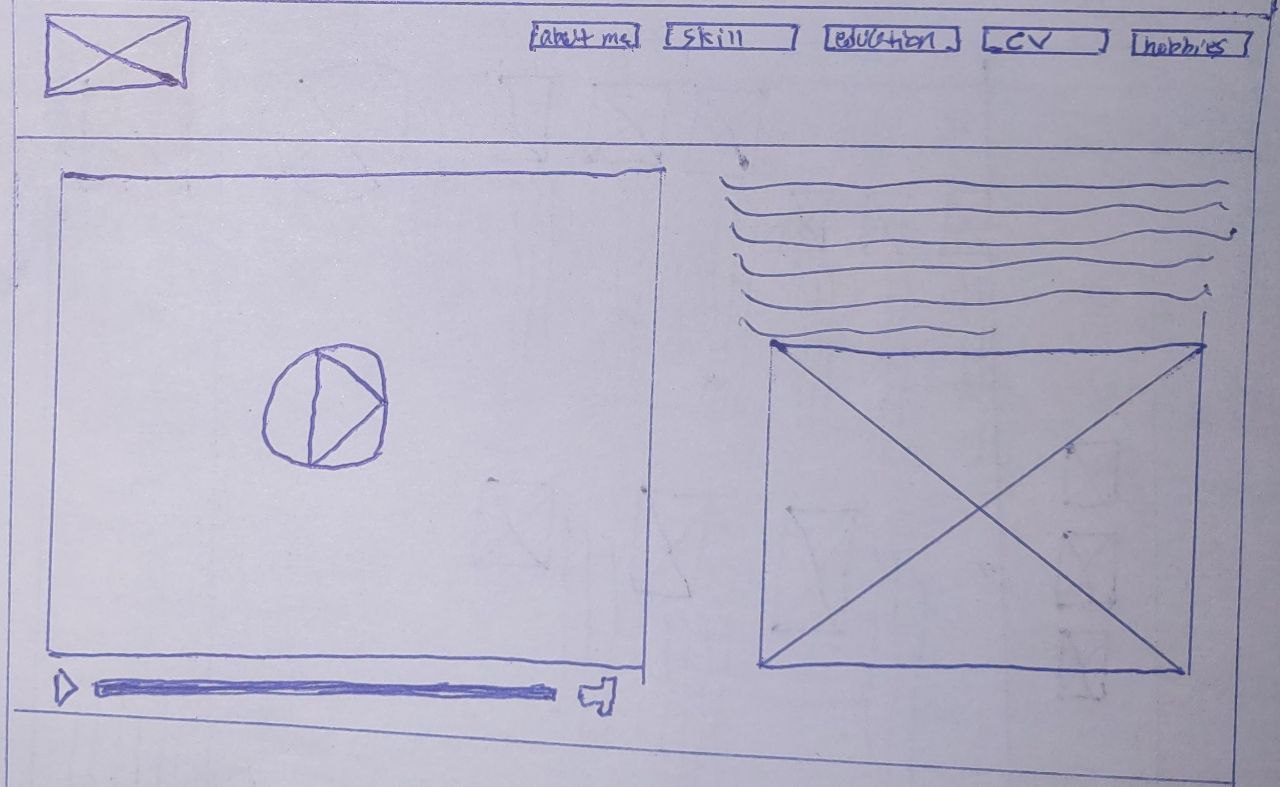 about me skill education CV hobbies